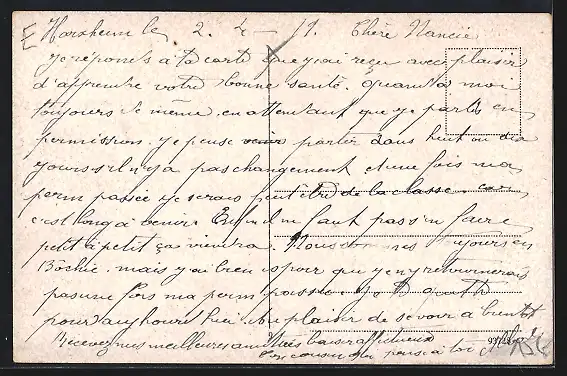 Harxheim le 2. 4 - 19. Chère Nancie
je réponds à ta carte que j'ai reçu avec plaisir
d'apprendre votre bonne santé. quand à moi
toujours de même. en attendant que je parte en
permission. je pense partir dans huit ou dix
jours s'il n'y a pas changement et une fois ma
perm passée je serais peut être de la classe. car
c'est long à venir. Enfin il ne faut pas s'en faire
petit à petit ça viendra. Nous sommes toujours en
Bôchie. mais j'ai bien espoir que j'en y retournerais
pas une fois ma perm passée. je te quitte
pour aujourd'hui. Au plaisir de se voir à bientôt
Recevez mes meilleures amitiés baisers affectueux
cousin qui pense à toi